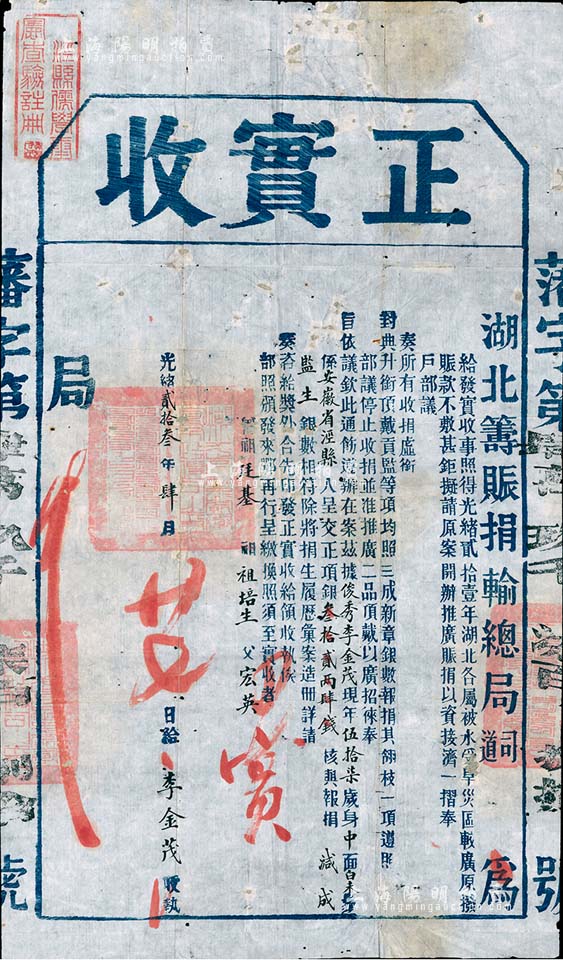 正實收
湖北籌賑捐輸總局詞道 為
給發實收事照得光緒貳拾壹年湖北各屬被水受旱災區較廣原撥
賑款不敷甚鉅擬請原案開辦推廣賑捐以資接濟一摺奉
戶部議
奏所有收捐虛銜
封典升銜頂戴貢監等項均照三成新章銀數報捐其翎枝一項遵照
部議停止收捐並准推廣二品頂戴以廣招徠奉
旨依議欽此通飭遵辦在案茲據俊秀李金茂現年伍拾柒歲身中面白
係安徽省涇縣人呈交正項銀叁拾貳兩肆錢 核與報捐 減成
監生 銀數相符除將捐生履歷彙案造冊詳請
奏咨給獎外合行印發正實收給領收執俟
部照頒發來鄂再行呈繳換照須至實收者
祖廷基 祖培生 父宏英
光緒貳拾叁年肆月 廿 日給 李金茂 收執
局
實
藩字第
號
藩字第
號
上海陽明拍賣
www.yangmingauction.com
上海陽明拍賣
www.yangmingauction.com
上海陽明拍賣
www.yangmingauction.com